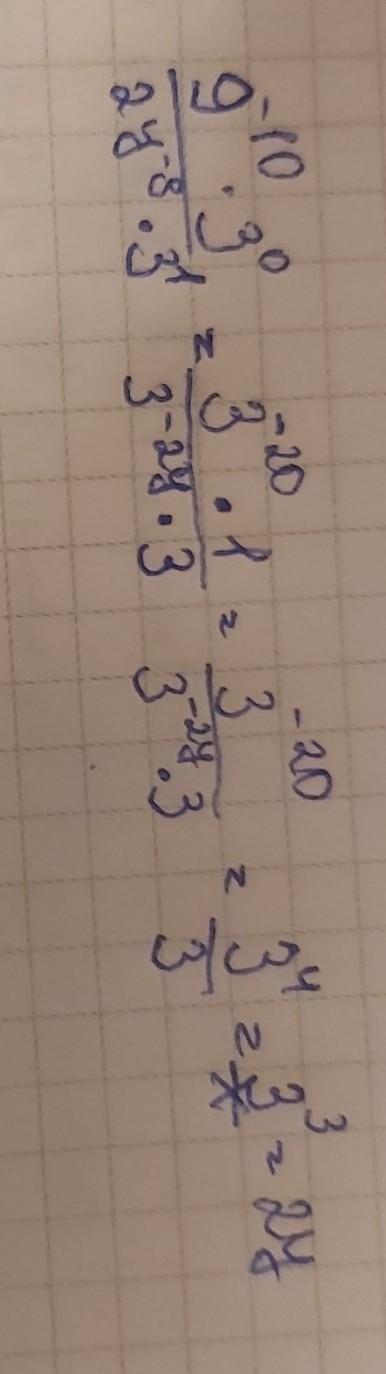 9⁻¹⁰ · 3⁰ / 27⁻⁸ · 3¹ = 3⁻²⁰ · 1 / 3⁻²⁴ · 3 = 3⁻²⁰ / 3⁻²⁴ · 3 = 3⁴ / 3 = 3³ = 27